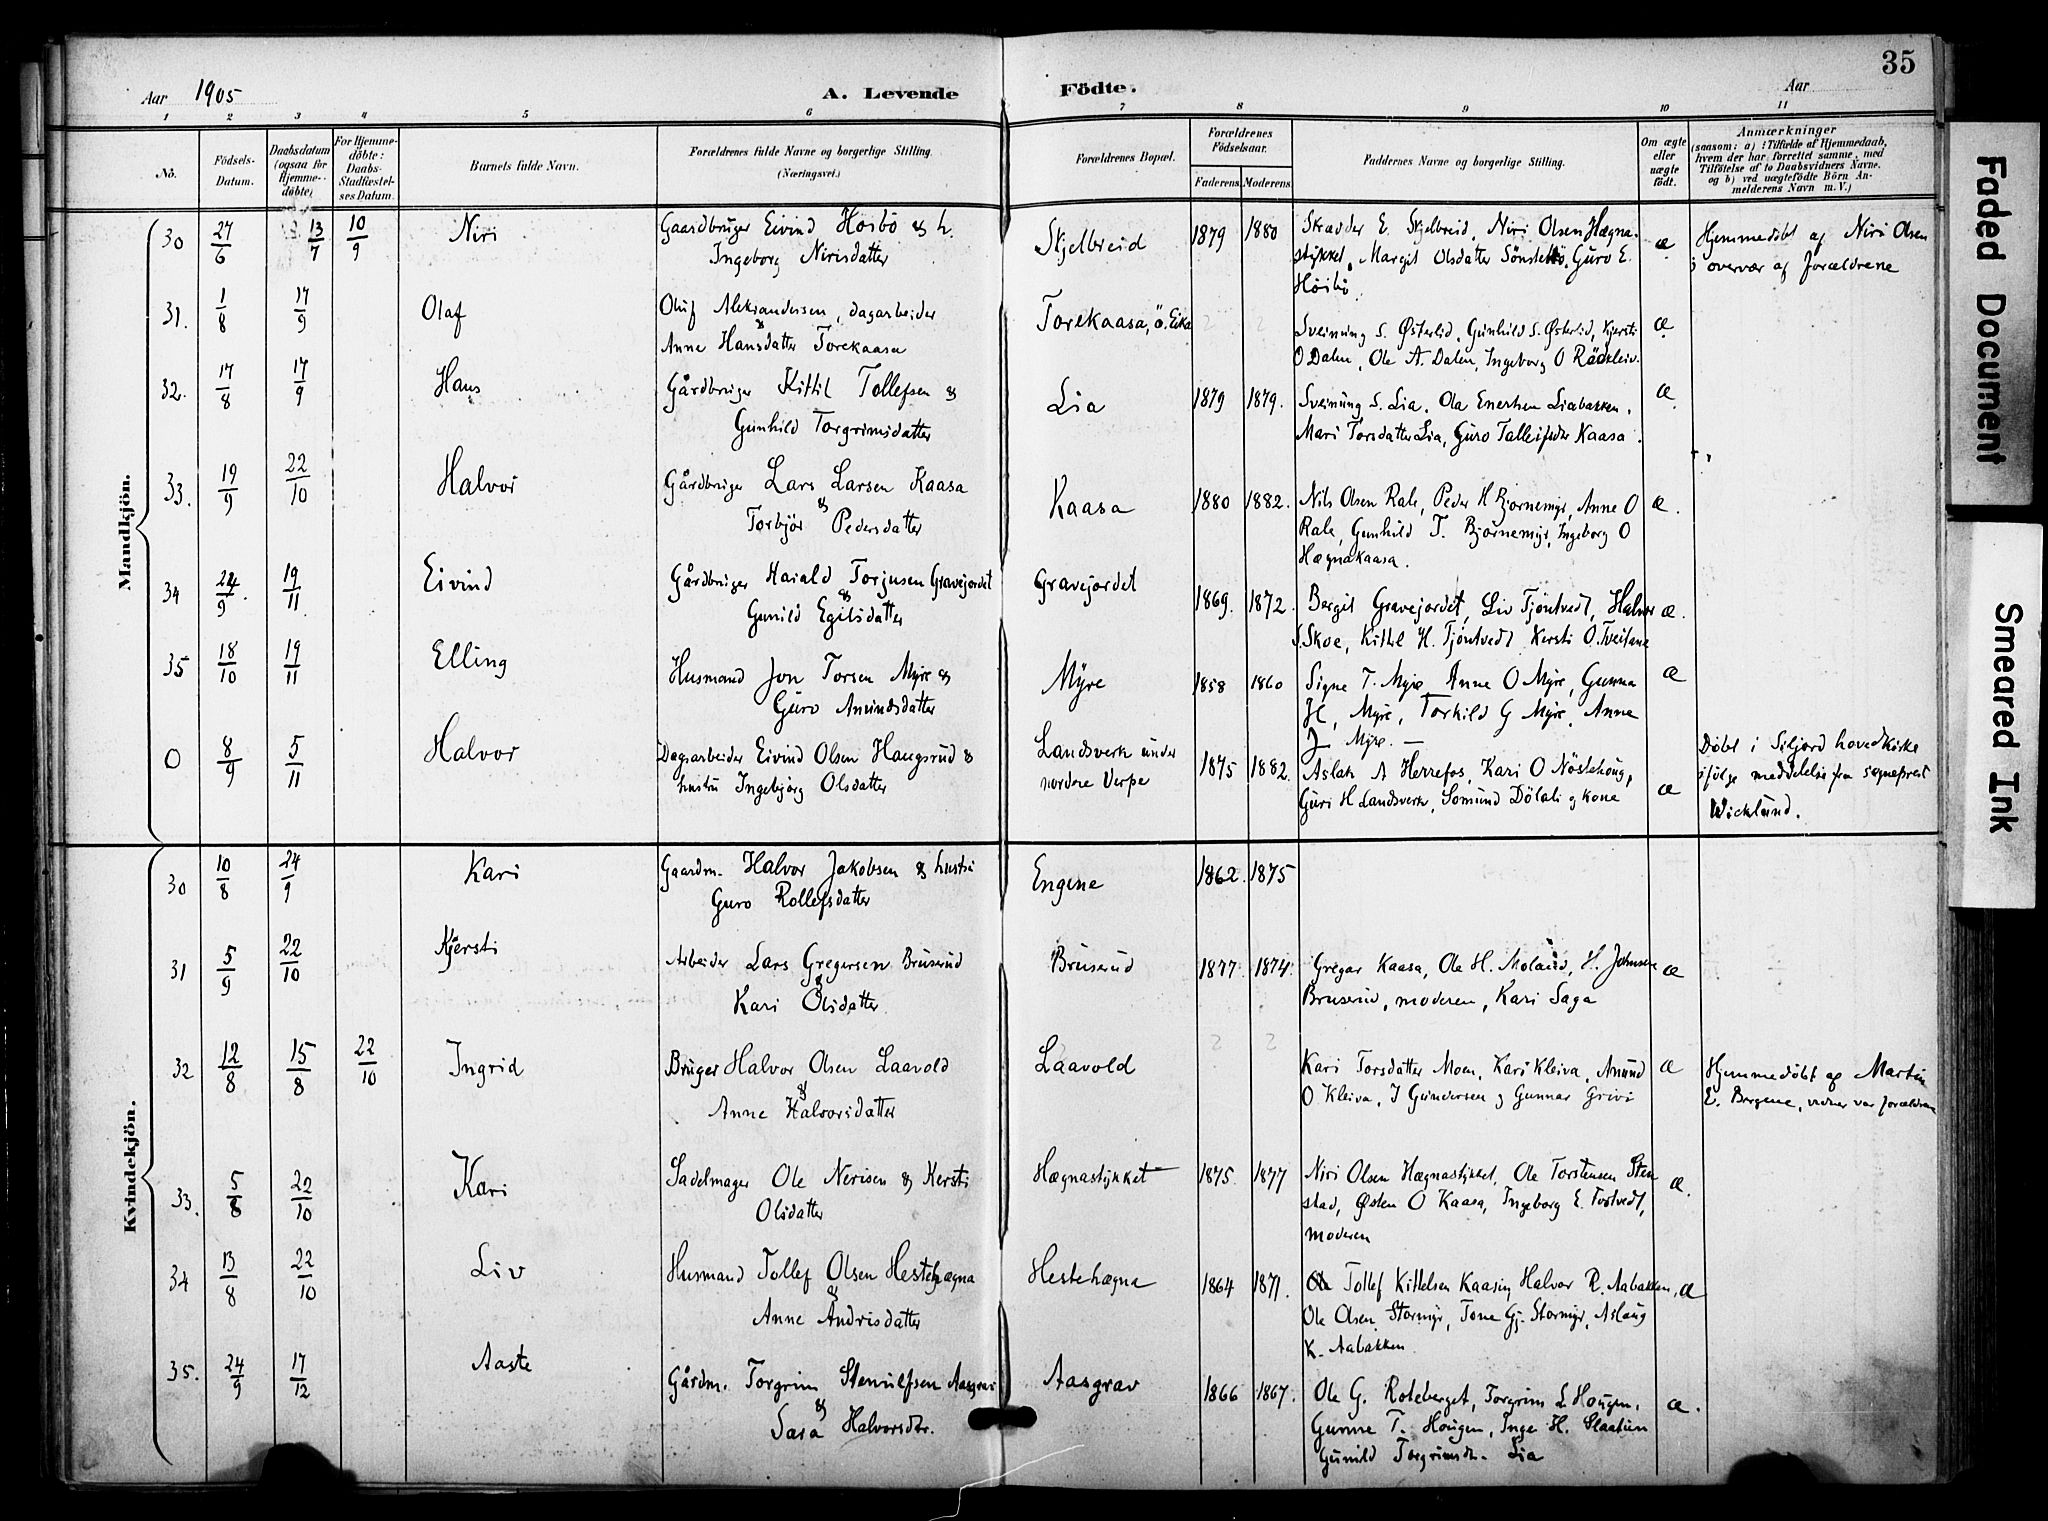 35
Aar 1905 A. Levende Födte. Aar
1 2 3 4 5 6 7 8 9 10 11
No. Födsels-Datum. Daabsdatum (ogsaa for Hjemme-döbte) For Hjemme-döbte: Daabs-Stadfæstelses Datum. Barnets fulde Navn. Forældrenes fulde Navne og borgerlige Stilling. (Næringsvei.) Forældrenes Bopæl. Forældrenes Födselsaar. Faderens Moderens Faddernes Navne og borgerlige Stilling. Om ægte eller uægte födt. Anmærkninger (saasom: a) i Tilfælde af Hjemmedaab, hvem der har forrettet samme, med Tilföielse af to Daabsvidners Navne. og b) ved uægtefödte Börn Anmelderens Navn m. V.)
Mandkjön.
30 27/6 13/7 10/9 Niri Gaardbruger Eivind Hoibö & h. Skjelbreid 1879 1880 Skrædder E. Skjelbreid, Niri Olsen Hægna- æ Hjemmedöbt af Niri Olsen
Ingeborg Nirisdatter stykket, Margit Olsdatter Sönstebö, Guro E. i overvær af forældrene
Höibö.
31. 1/8 17/9 Olaf Oluf Aleksandersen, dagarbeider Torekaasa, ö. Eika Sveinung S. Østerlid, Gunhild S. Østerlid, Kjersti æ
& Anne Hansdatter Torekaasa O Dalen, Ole A. Dalen, Ingeborg O Rädkleiv.
32. 17/8 17/9 Hans Gårdbruger Kittil Tollefsen & Lia 1879 1879. Sveinung S. Lia. Ola Enersen Liabakken, æ.
Gunhild Torgrimsdatter Mari Torsdatter Lia, Guro Talleifsdtr Kaasa.
33. 19/9 22/10 Halvor Gårdbruger Lars Larsen Kaasa Kaasa 1880 1882. Nils Olsen Rale, Peder H Bjornemyr, Anne O æ.
& Torbjör Pedersdatter Rale, Gunhild T. Bjornemyr, Ingeborg O
Hægnakaasa.
34 24/9. 19/11. Eivind Gårdbruger Harald Torjusen Gravejordet Gravejordet 1869. 1872. Bergit Gravejordet, Liv Tjöntvedt, Halvor æ.
& Gunild Egilsdatter S. Skoe, Kittil H. Tjöntvedt Kersti O. Tveitane
35 18/10 19/11 Elling Husmand Jon Torsen Myre & Myre 1858 1860 Signe T. Myre, Anne O Myre, Gunna æ
Guro Anundsdatter H, Myre, Torkild G Myre, Anne
J Myre. —
0 8/9 5/11 Halvor Dagarbeider Eivind Olsen Haugsrud & Landsverk under 1875 1882. Aslak A Herrefos, Kari O Nöstehoug, æ Döbt i Siljord hovedkirke
hustru Ingebjörg Olsdatter nordre Verpe Guri H Landsverk, Somund Dölali og kone ifölge meddelelse fra sogneprest
Wicklund.
Kvindekjön.
30 10/8 24/9 Kari Gaardm. Halvor Jakobsen & hustru Engene 1862. 1875
Guro Rollefsdatter
31 5/9 22/10 Kjersti Arbeider Lars Gregersen Bruserud Bruserud 1877. 1874. Gregar Kaasa, Ole H. Moland, H. Johnsen æ
& Kari Olsdatter Bruserud, moderen, Kari Saga
32 12/8 15/8 22/10 Ingrid Bruger Halvor Olsen Laavold Laavold Kari Torsdatter Moen, Kari Kleiva, Anund æ Hjemmedöbt af Martin
& Anne Halvorsdatter O Kleiva, J Gundersen og Gunnar Grivi E. Bergene, vidner var forældrene
33. 5/8 22/10 Kari Sadelmager Ole Nerisen & Kersti Hægnastykket 1875. 1877 Niri Olsen Hægnastykket, Ole Torstensen Sten æ.
Olsdatter stad, Østen O Kaasa, Ingeborg E. Tvetvedt,
moderen
34 13/8 22/10 Liv Husmand Tollef Olsen Hestehægna Hestehægna 1864 1871. Tollef Kittelsen Kaasin, Halvor R. Aabakken, æ
& Anne Andrisdatter Ole Olsen Stormyr, Tone Gj. Stormyr, Aslaug
K. Aabakken
35. 24/9 17/12 Aaste Gårdm. Torgrim Stenulfsen Aasgrav Aasgrav 1866 1867. Ole G. Roteberget, Torgrim L Hougen, æ.
& Sara Halvorsdtr. Gunne T. Hougen, Inge H. Slaatun
Gunild Torgrimsdtr. Lia
Faded Document
Smeared Ink